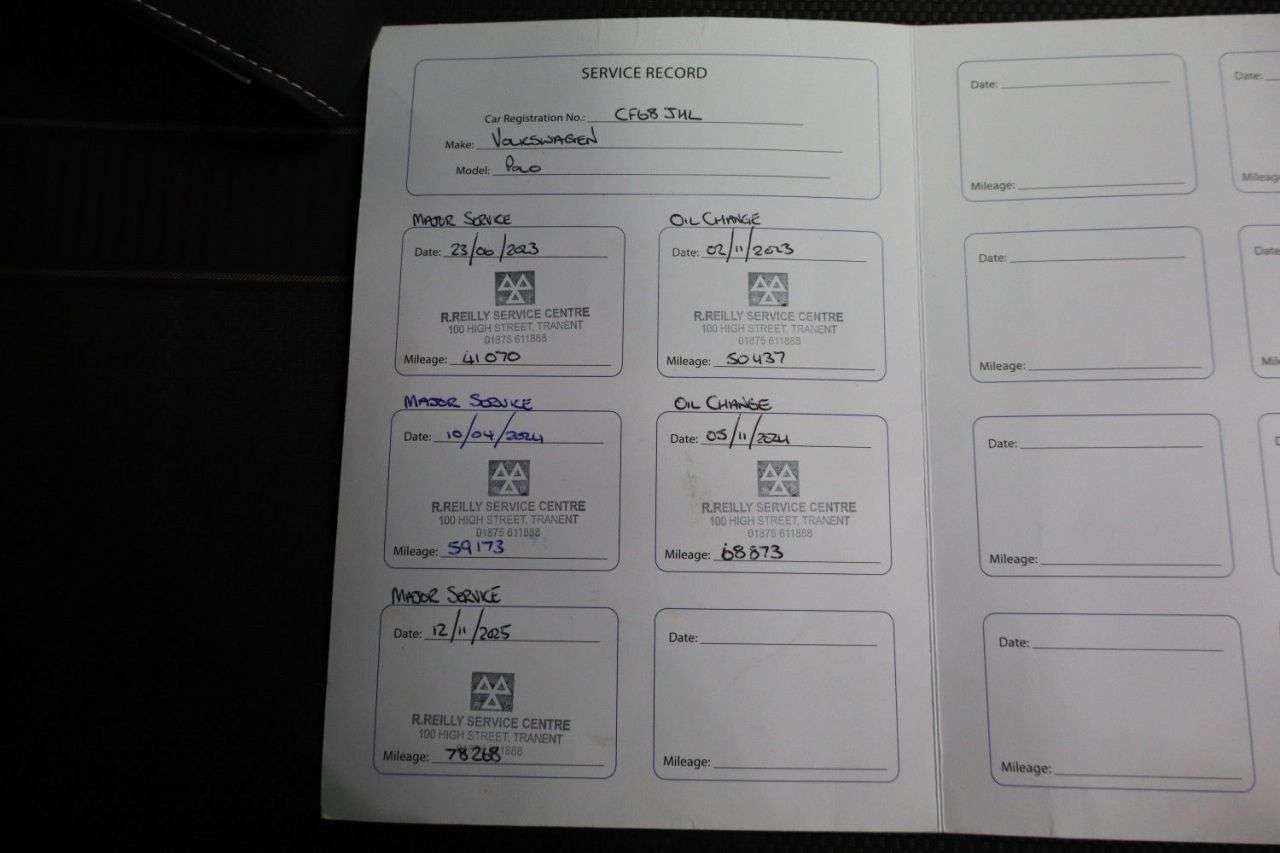 SERVICE RECORD
Car Registration No.: CF68 JHL
Make: VOLKSWAGEN
Model: POLO
MAJOR SERVICE
Date: 23/06/2023
R.REILLY SERVICE CENTRE
100 HIGH STREET, TRANENT
01875 611888
Mileage: 41070
OIL CHANGE
Date: 02/11/2023
R.REILLY SERVICE CENTRE
100 HIGH STREET, TRANENT
01875 611888
Mileage: 50437
MAJOR SERVICE
Date: 10/04/2024
R.REILLY SERVICE CENTRE
100 HIGH STREET, TRANENT
01875 611888
Mileage: 59173
OIL CHANGE
Date: 05/11/2024
R.REILLY SERVICE CENTRE
100 HIGH STREET, TRANENT
01875 611888
Mileage: 68873
MAJOR SERVICE
Date: 12/11/2025
R.REILLY SERVICE CENTRE
100 HIGH STREET, TRANENT
Mileage: 78268
Date:
Mileage:
Date:
Mileage:
Date:
Mileage:
Date:
Mileage:
Date:
Mileage:
Date:
Mileage
Date